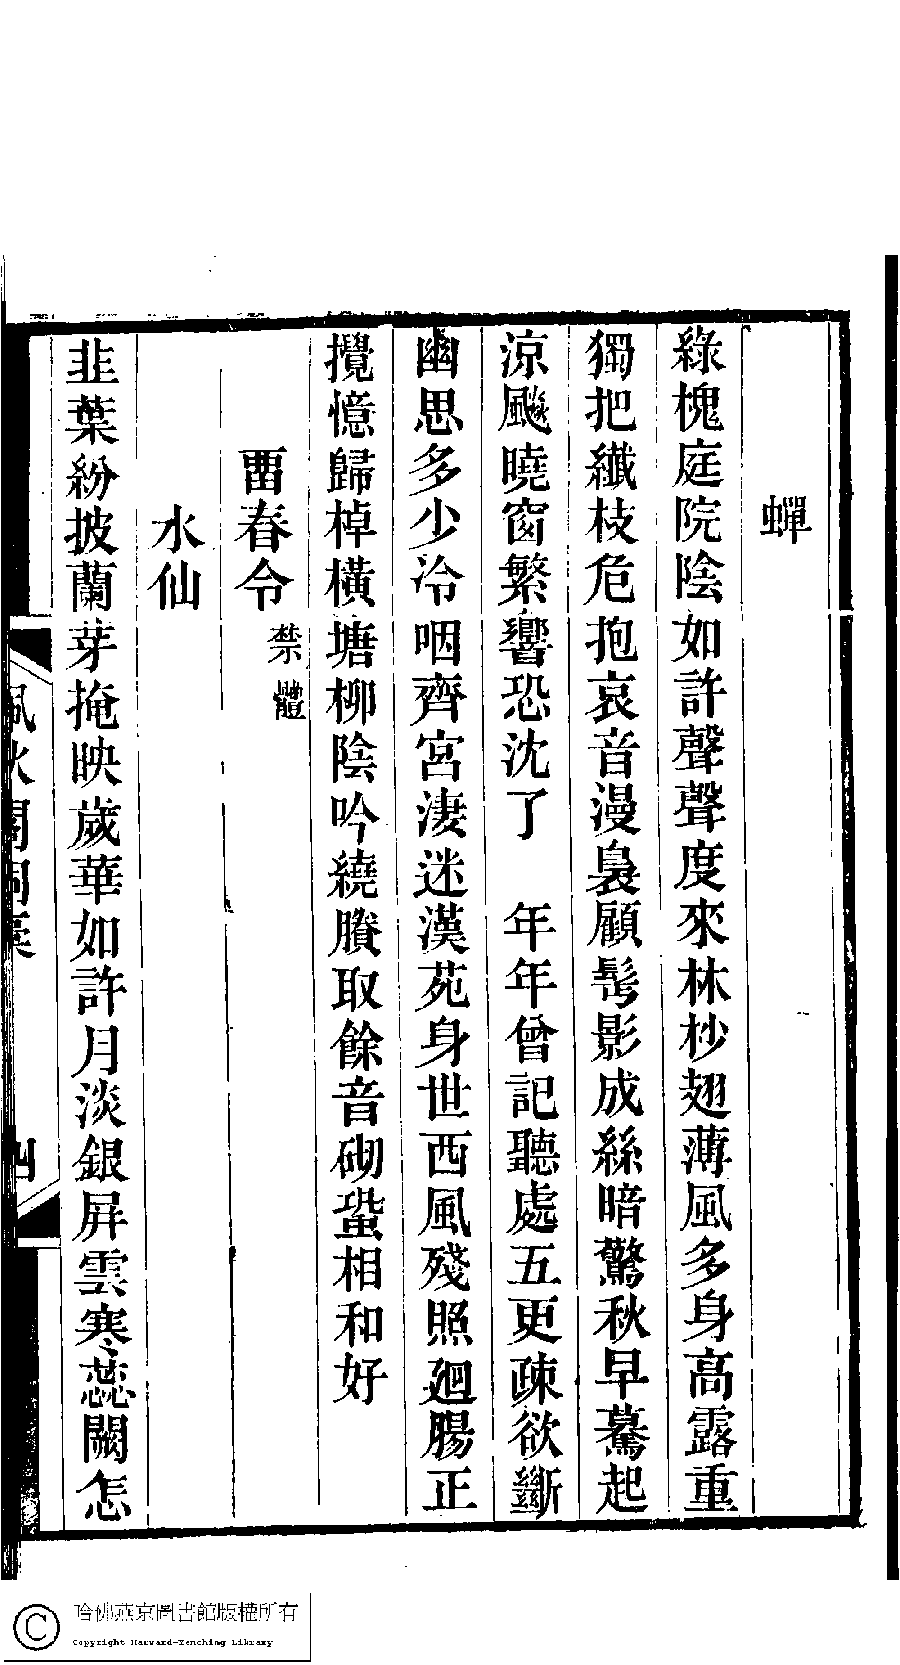 蟬
綠槐庭院陰如許聲聲度來林杪翅薄風多身高露重
獨把纖枝危抱哀音漫裊顧髩影成絲暗驚秋早驀起
涼颸曉窗繁響恐沈了　年年曾記聽處五更疎欲斷
幽思多少冷咽齊宮淒迷漢苑身世西風殘照廻腸正
攪憶歸棹橫塘柳陰吟繞賸取餘音砌蛩相和好
畱春令禁體
水仙
韭葉紛披蘭芽掩映歲華如許月淡銀屏雲寒蕊闕怎
四
哈佛燕京圖書館版權所有
Copyright Harvard-Yenching Library